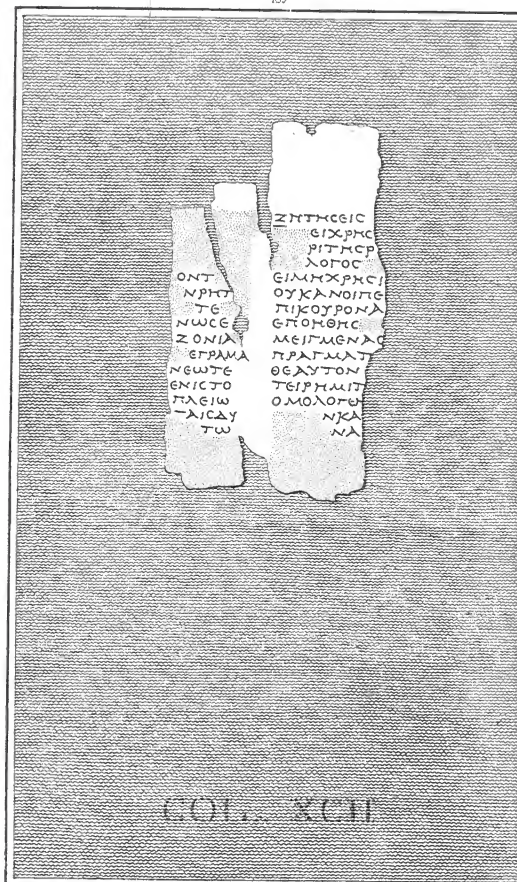 ΟΝΤ
ΝΡΗΤ
ΤΕ
ΝΩϹΕ
ΖΟΝΙΑ
ΕΓΡΑΜΑ
ΝΕΩΤΕ
ΕΝΙϹΤΟ
ΠΛΕΙΩ
ΤΩ
ΖΗΤΗϹΕΙϹ
ΕΙΧΡΗϹ
ΡΙΤΗϹΡ
ΛΟΓΟϹ
ΕΙΜΗΧΡΗϹΙ
ΟΥΚΑΝΟΙΠΕ
ΠΙΚΟΥΡΟΝΑ
ΕΠΟΗΘΗϹ
ΜΕΙΓΜΕΝΑϹ
ΠΡΑΓΜΑΤ
ΘΕΑΥΤΟΝ
ΤΕΙΡΗΜΙΤ
ΟΜΟΛΟΓΕ
ΝΚΑ
ΝΑ
COL. XCII